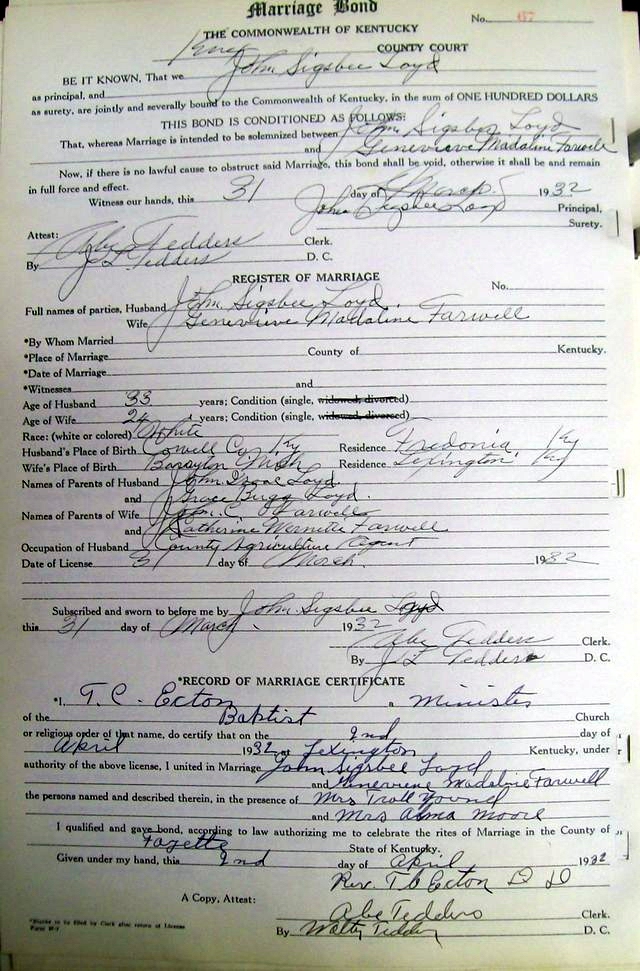 Marriage Bond
No. 67
THE COMMONWEALTH OF KENTUCKY
COUNTY COURT
BE IT KNOWN, That we John Sigsbee Loyd
as principal, and
as surety, are jointly and severally bound to the Commonwealth of Kentucky, in the sum of ONE HUNDRED DOLLARS
THIS BOND IS CONDITIONED AS FOLLOWS:
That, whereas Marriage is intended to be solemnized between John Sigsbee Loyd
and Genevieve Madaline Farwell
Now, if there is no lawful cause to obstruct said Marriage, this bond shall be void, otherwise it shall be and remain
in full force and effect.
Witness our hands, this 31 day of March 1932
John Sigsbee Loyd Principal,
Surety.
Attest:
Abe Tedders Clerk.
By J L Tedders D. C.
REGISTER OF MARRIAGE
No.
Full names of parties, Husband John Sigsbee Loyd.
Wife Genevieve Madaline Farwell
*By Whom Married
*Place of Marriage County of Kentucky.
*Date of Marriage
*Witnesses and
Age of Husband 33 years; Condition (single, widowed, divorced)
Age of Wife years; Condition (single, widowed, divorced)
Race: (white or colored) White
Husband's Place of Birth Co Ky Residence Fredonia Ky
Wife's Place of Birth Mich Residence Lexington Ky
Names of Parents of Husband John Loyd.
and Grace Bugg Loyd.
Names of Parents of Wife C. Farwell
and Katherine Farwell
Occupation of Husband County Agriculture Agent
Date of License 31 day of March 1932
Subscribed and sworn to before me by John Sigsbee Loyd
this 31 day of March. 1932
Abe Tedders Clerk.
By J L Tedders D. C.
*RECORD OF MARRIAGE CERTIFICATE
*I, T. C. Ecton a Minister
of the Baptist Church
or religious order of that name, do certify that on the 2nd day of
April 1932 at Lexington Kentucky, under
authority of the above license, I united in Marriage John Sigsbee Loyd
and Genevieve Madaline Farwell
the persons named and described therein, in the presence of Mrs Trall Young
and Mrs Alma Moore
I qualified and gave bond, according to law authorizing me to celebrate the rites of Marriage in the County of
Fayette State of Kentucky.
Given under my hand, this 2nd day of April 1932
Rev. T. C. Ecton D D
A Copy, Attest:
Abe Tedders Clerk.
*Blanks to be filled by Clerk after return of License
By D. C.